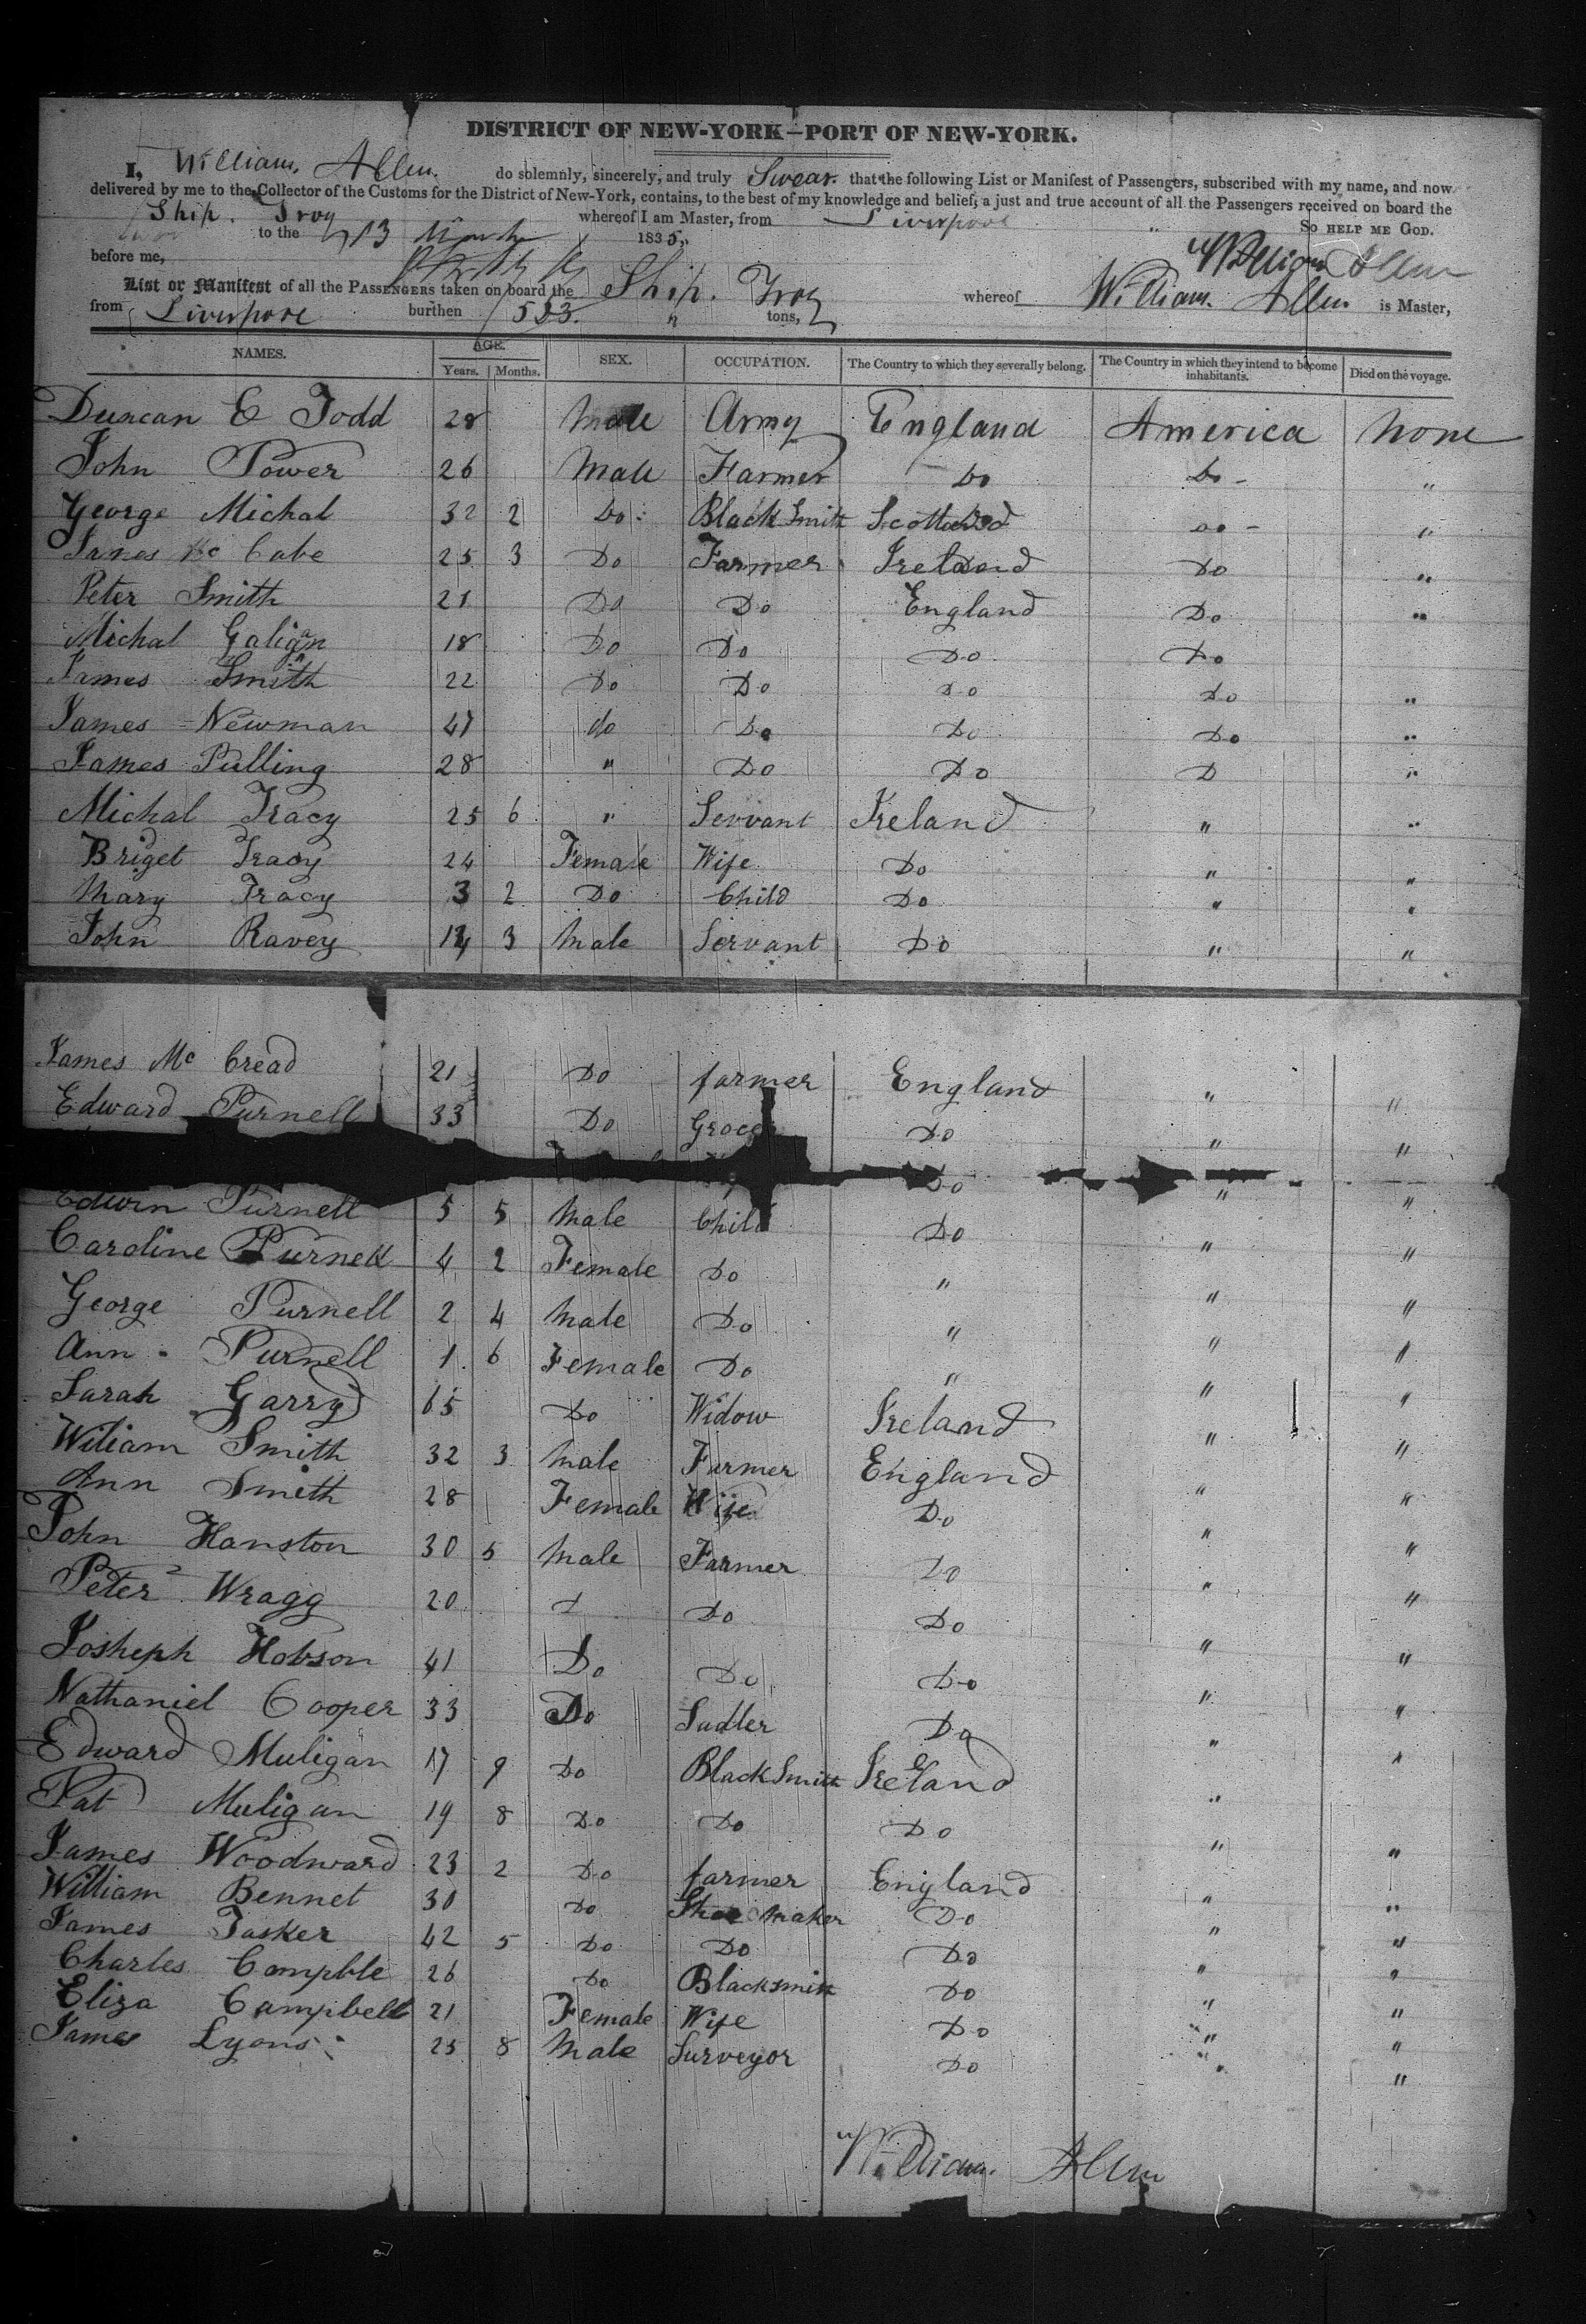 DISTRICT OF NEW-YORK—PORT OF NEW-YORK.
I, William. Allen. do solemnly, sincerely, and truly Swear. that the following List or Manifest of Passengers, subscribed with my name, and now
delivered by me to the Collector of the Customs for the District of New-York, contains, to the best of my knowledge and belief, a just and true account of all the Passengers received on board the
Ship. Troy whereof I am Master, from Liverpool
to the 13 March 1835. SO HELP ME GOD.
before me, William Allen
List or Manifest of all the PASSENGERS taken on board the Ship. Troy whereof William. Allen is Master,
from Liverpool burthen 523. tons,
NAMES. AGE. SEX. OCCUPATION. The Country to which they severally belong. The Country in which they intend to become inhabitants. Died on the voyage.
Years. Months.
Duncan E Todd 28 Male Army England America None
John Power 26 Male Farmer Do Do - "
George Michal 32 2 Do Black Smith Scotland Do - "
James Mc Cabe 25 3 Do Farmer Ireland Do "
Peter Smith 21 Do Do England Do "
Michal Galigan 18 Do Do Do Do
James Smith 22 Do Do Do Do "
James Newman 47 do Do Do Do "
James Pulling 28 " Do Do D "
Michal Tracy 25 6 " Servant Ireland " "
Briget Tracy 24 Female Wife Do " "
Mary Tracy 3 2 Do Child Do " "
John Ravey 14 3 Male Servant Do " "
James Mc Cread 21 Do farmer England " "
Edward Purnell 33 Do Grocer Do " "
Do " "
Edwin Purnell 5 5 Male Child Do " "
Caroline Purnell 4 2 Female Do " " "
George Purnell 2 4 Male Do " " "
Ann Purnell 1 6 Female Do " " "
Sarah Garry 65 Do Widow Ireland " "
Wiliam Smith 32 3 Male Farmer England " "
Ann Smith 28 Female Wife Do " "
John Hanston 30 5 Male Farmer Do " "
Peter Wragg 20 Do Do " "
Josheph Hobson 41 Do Do Do " "
Nathaniel Cooper 33 Do Sadler Do " "
Edward Muligan 17 9 Do BlackSmith Ireland "
Pat Muligan 19 8 Do Do Do " "
James Woodward 23 2 Do farmer England " "
William Bennet 30 Do Shoe Maker Do " "
James Tasker 42 5 Do Do Do " "
Charles Campble 26 Do Blacksmith Do " "
Eliza Campbell 21 Female Wife Do " "
James Lyons 25 8 Male Surveyor Do " "
William. Allen